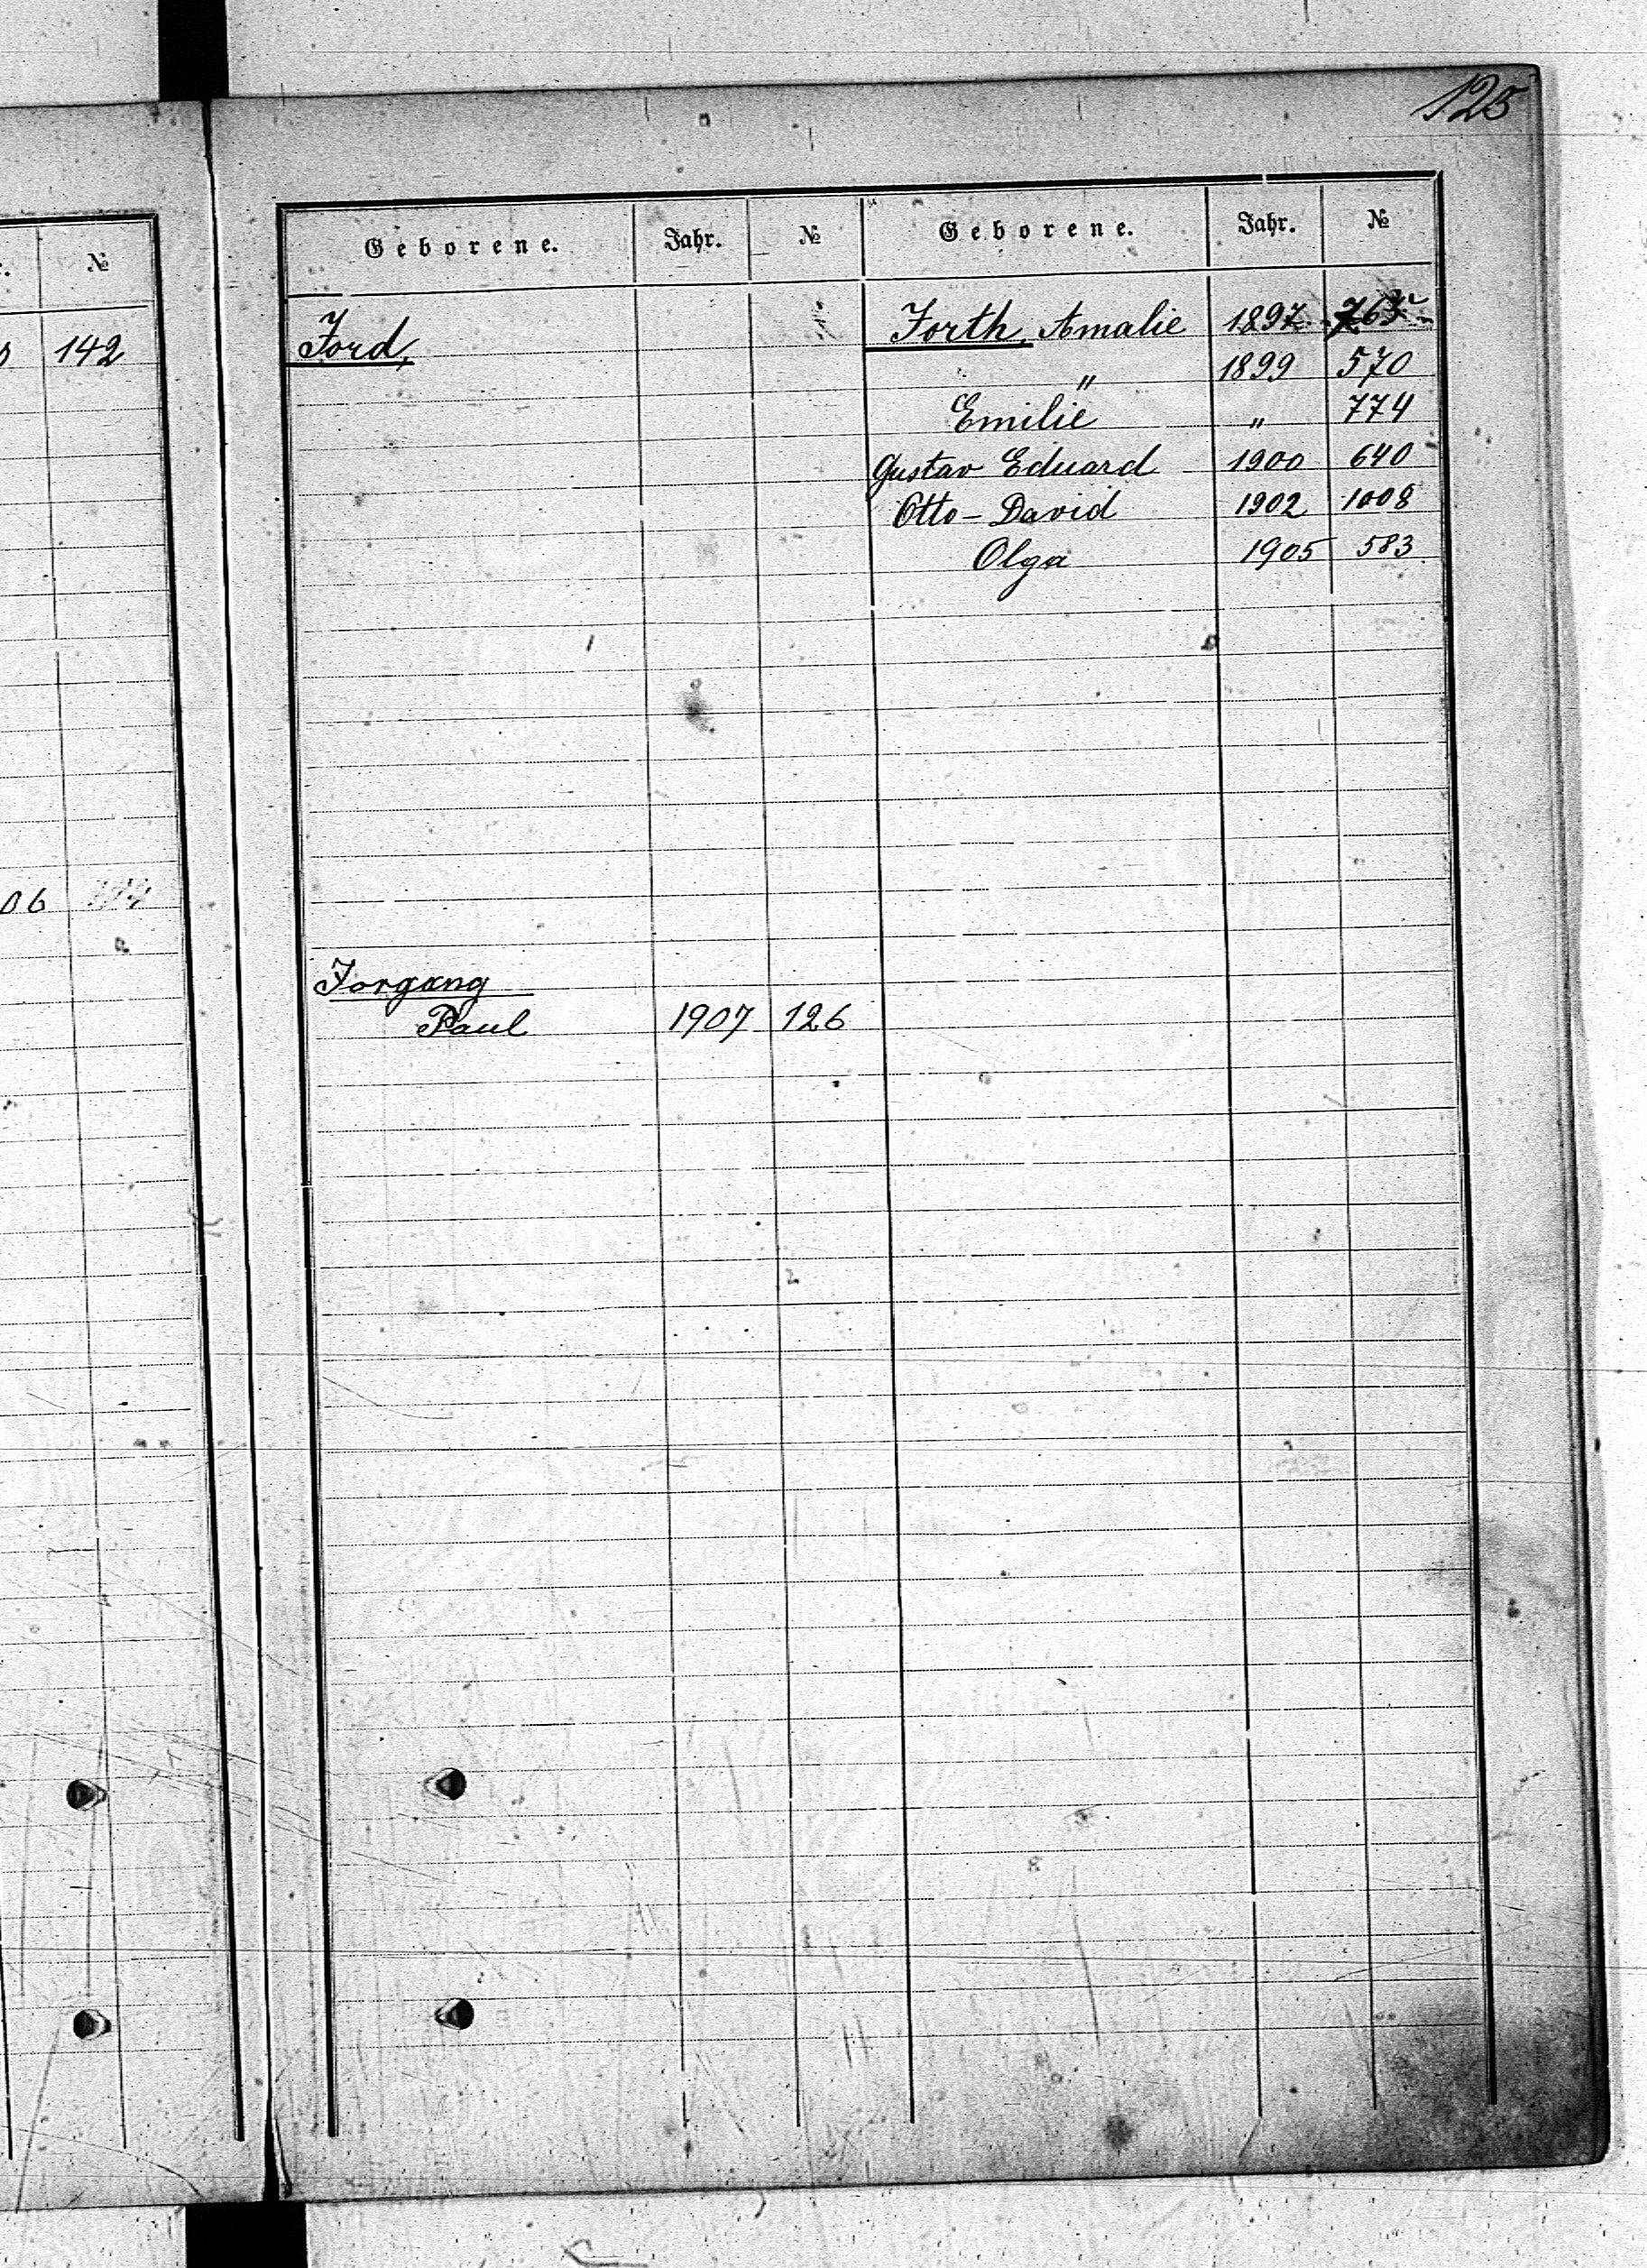 125
№
142
06
Geborene. Jahr. № Geborene. Jahr. №
Ford,
Forgang
Paul 1907 126
Forth, Amalie 1897
" 1899 570
Emilie " 774
Gustav Eduard 1900 640
Otto - David 1902 1008
Olga 1905 583